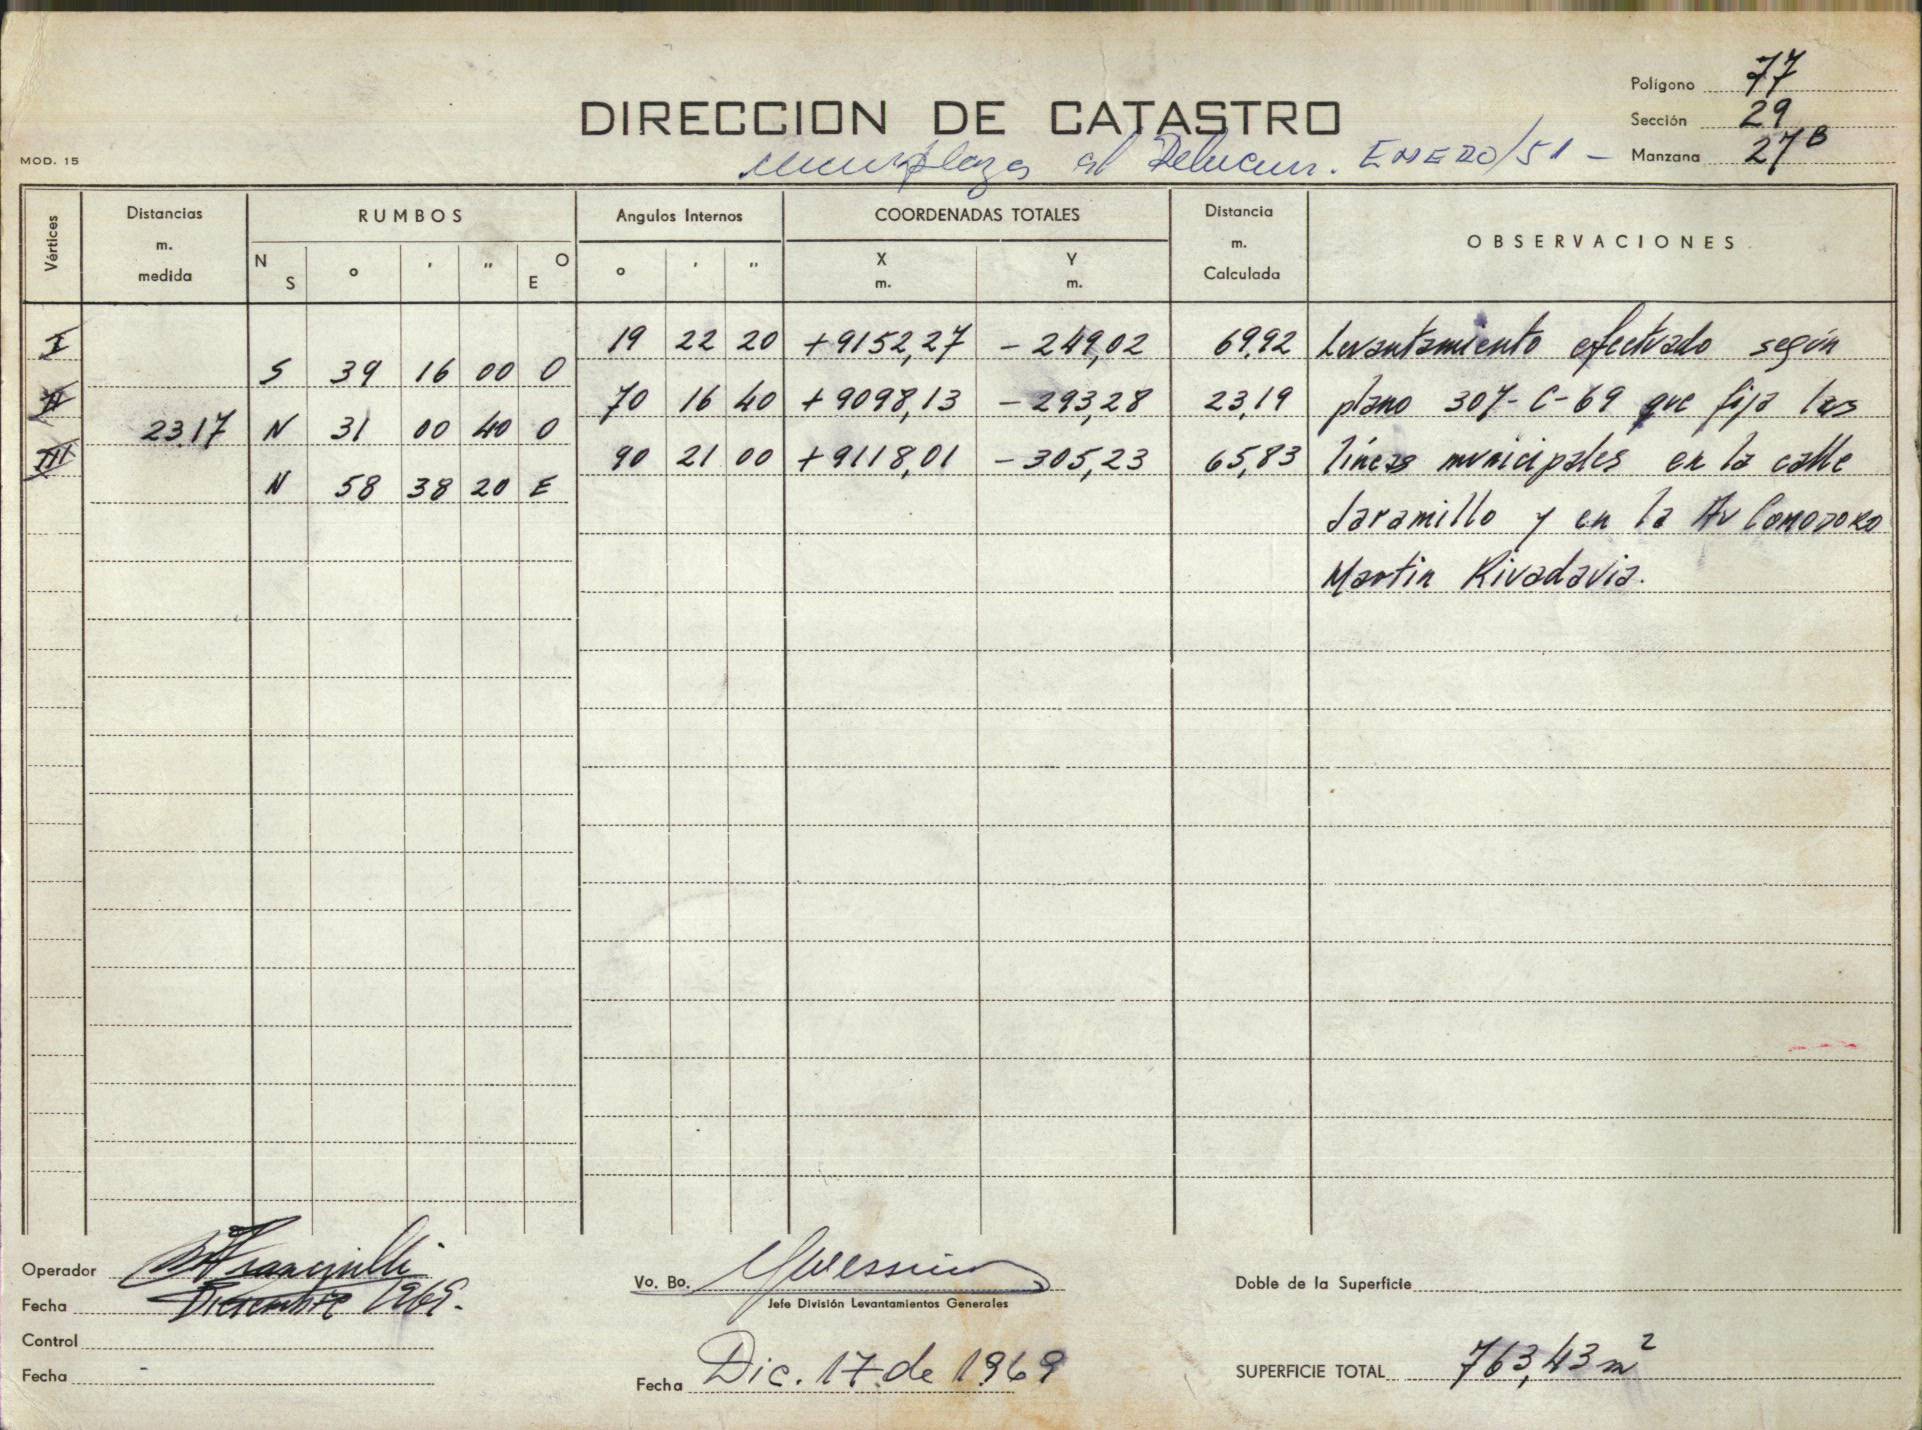 Polígono 77
DIRECCION DE CATASTRO
Sección 29
MOD. 15
al ENERO/51 -
Manzana 27B
Vértices
Distancias m. medida
RUMBOS
N S
° ' "
O E
Angulos Internos
° ' "
COORDENADAS TOTALES
X m.
Y m.
Distancia m. Calculada
OBSERVACIONES
I 19 22 20 +9152,27 -249,02 69,92 Levantamiento efectuado según
S 39 16 00 O
II 70 16 40 +9098,13 -293,28 23,19 plano 307-C-69 que fija las
23.17 N 31 00 40 O
III 90 21 00 +9118,01 -305,23 65,83 líneas municipales en la calle
N 58 38 20 E
Jaramillo y en la Av Comodoro
Martin Rivadavia.
Operador
Fecha Diciembre 1969.
Control
Fecha -
Vo. Bo.
Jefe División Levantamientos Generales
Fecha Dic. 17 de 1969
Doble de la Superficie
SUPERFICIE TOTAL 763,43 m2